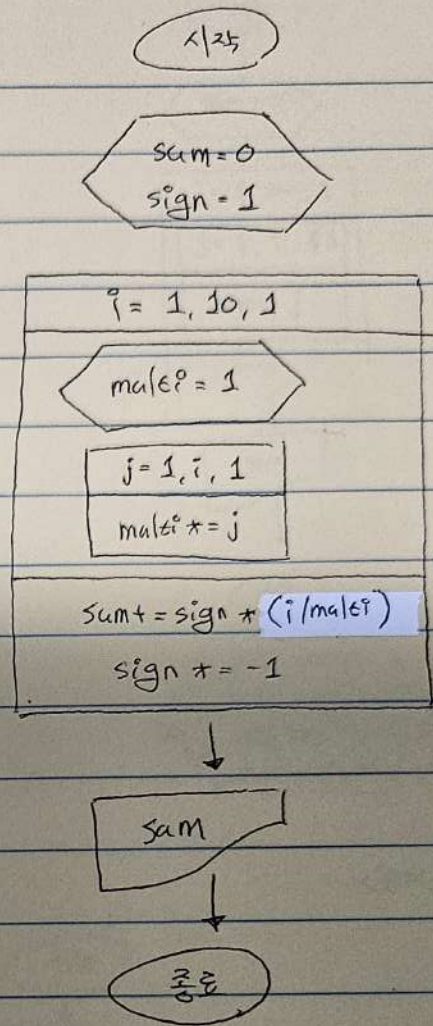 시작
sum = 0
sign = 1
i = 1, 10, 1
multi = 1
j = 1, i, 1
multi *= j
sum += sign * (i/multi)
sign *= -1
sum
종료